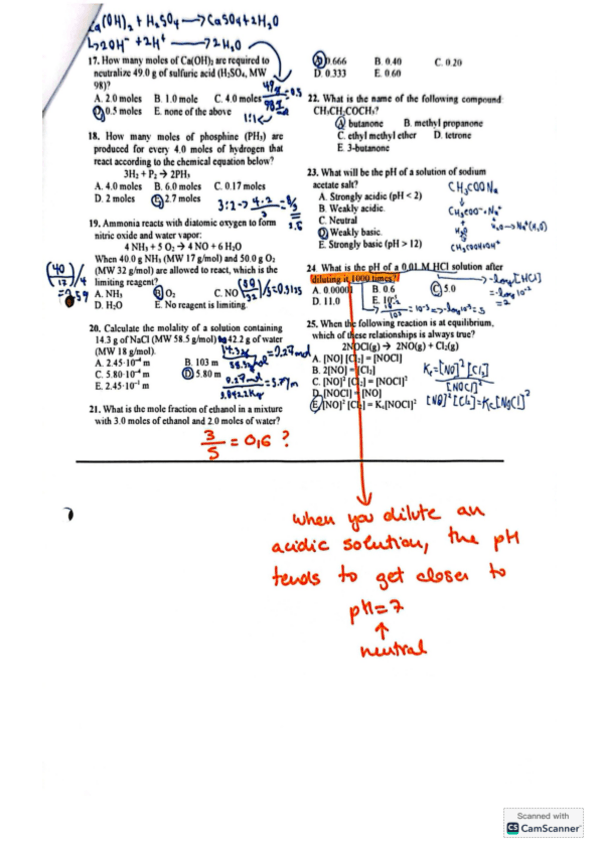 Ca(OH)₂ + H₂SO₄ → CaSO₄ + 2H₂O
↳ 2OH⁻ + 2H⁺ → 2H₂O
17. How many moles of Ca(OH)₂ are required to
neutralize 49.0 g of sulfuric acid (H₂SO₄, MW
98)?
A. 2.0 moles B. 1.0 mole C. 4.0 moles
D. 0.5 moles E. none of the above
18. How many moles of phosphine (PH₃) are
produced for every 4.0 moles of hydrogen that
react according to the chemical equation below?
3H₂ + P₂ → 2PH₃
A. 4.0 moles B. 6.0 moles C. 0.17 moles
D. 2 moles E. 2.7 moles
19. Ammonia reacts with diatomic oxygen to form
nitric oxide and water vapor:
4 NH₃ + 5 O₂ → 4 NO + 6 H₂O
When 40.0 g NH₃ (MW 17 g/mol) and 50.0 g O₂
(MW 32 g/mol) are allowed to react, which is the
limiting reagent?
A. NH₃ B. O₂ C. NO
D. H₂O E. No reagent is limiting.
20. Calculate the molality of a solution containing
14.3 g of NaCl (MW 58.5 g/mol) 42.2 g of water
(MW 18 g/mol).
A. 2.45·10⁻⁴ m B. 103 m
C. 5.80·10⁻⁴ m D. 5.80 m
E. 2.45·10⁻¹ m
21. What is the mole fraction of ethanol in a mixture
with 3.0 moles of ethanol and 2.0 moles of water?
3/5 = 0,6 ?
A. 0.666 B. 0.40 C. 0.20
D. 0.333 E. 0.60
22. What is the name of the following compound
CH₃CH₂COCH₃?
A. butanone B. methyl propanone
C. ethyl methyl ether D. tetrone
E. 3-butanone
23. What will be the pH of a solution of sodium
acetate salt?
A. Strongly acidic (pH < 2)
B. Weakly acidic.
C. Neutral
D. Weakly basic.
E. Strongly basic (pH > 12)
CH₃COONa
24. What is the pH of a 0.01 M HCl solution after
diluting it 1000 times?
A. 0.00001 B. 0.6 C. 5.0
D. 11.0 E. 10⁻²
-log[HCl]
= -log10⁻²
= 2
25. When the following reaction is at equilibrium,
which of these relationships is always true?
2NOCl(g) → 2NO(g) + Cl₂(g)
A. [NO] [Cl₂] = [NOCl]
B. 2[NO] = [Cl₂]
C. [NO]² [Cl₂] = [NOCl]²
D. [NOCl] = [NO]
E. [NO]² [Cl₂] = Kc[NOCl]²
Kc = [NO]² [Cl₂]
[NOCl]²
[NO]² [Cl₂] = Kc[NOCl]²
when you dilute an
acidic solution, the pH
tends to get closer to
pH=7
↑
neutral
Scanned with
CS CamScanner